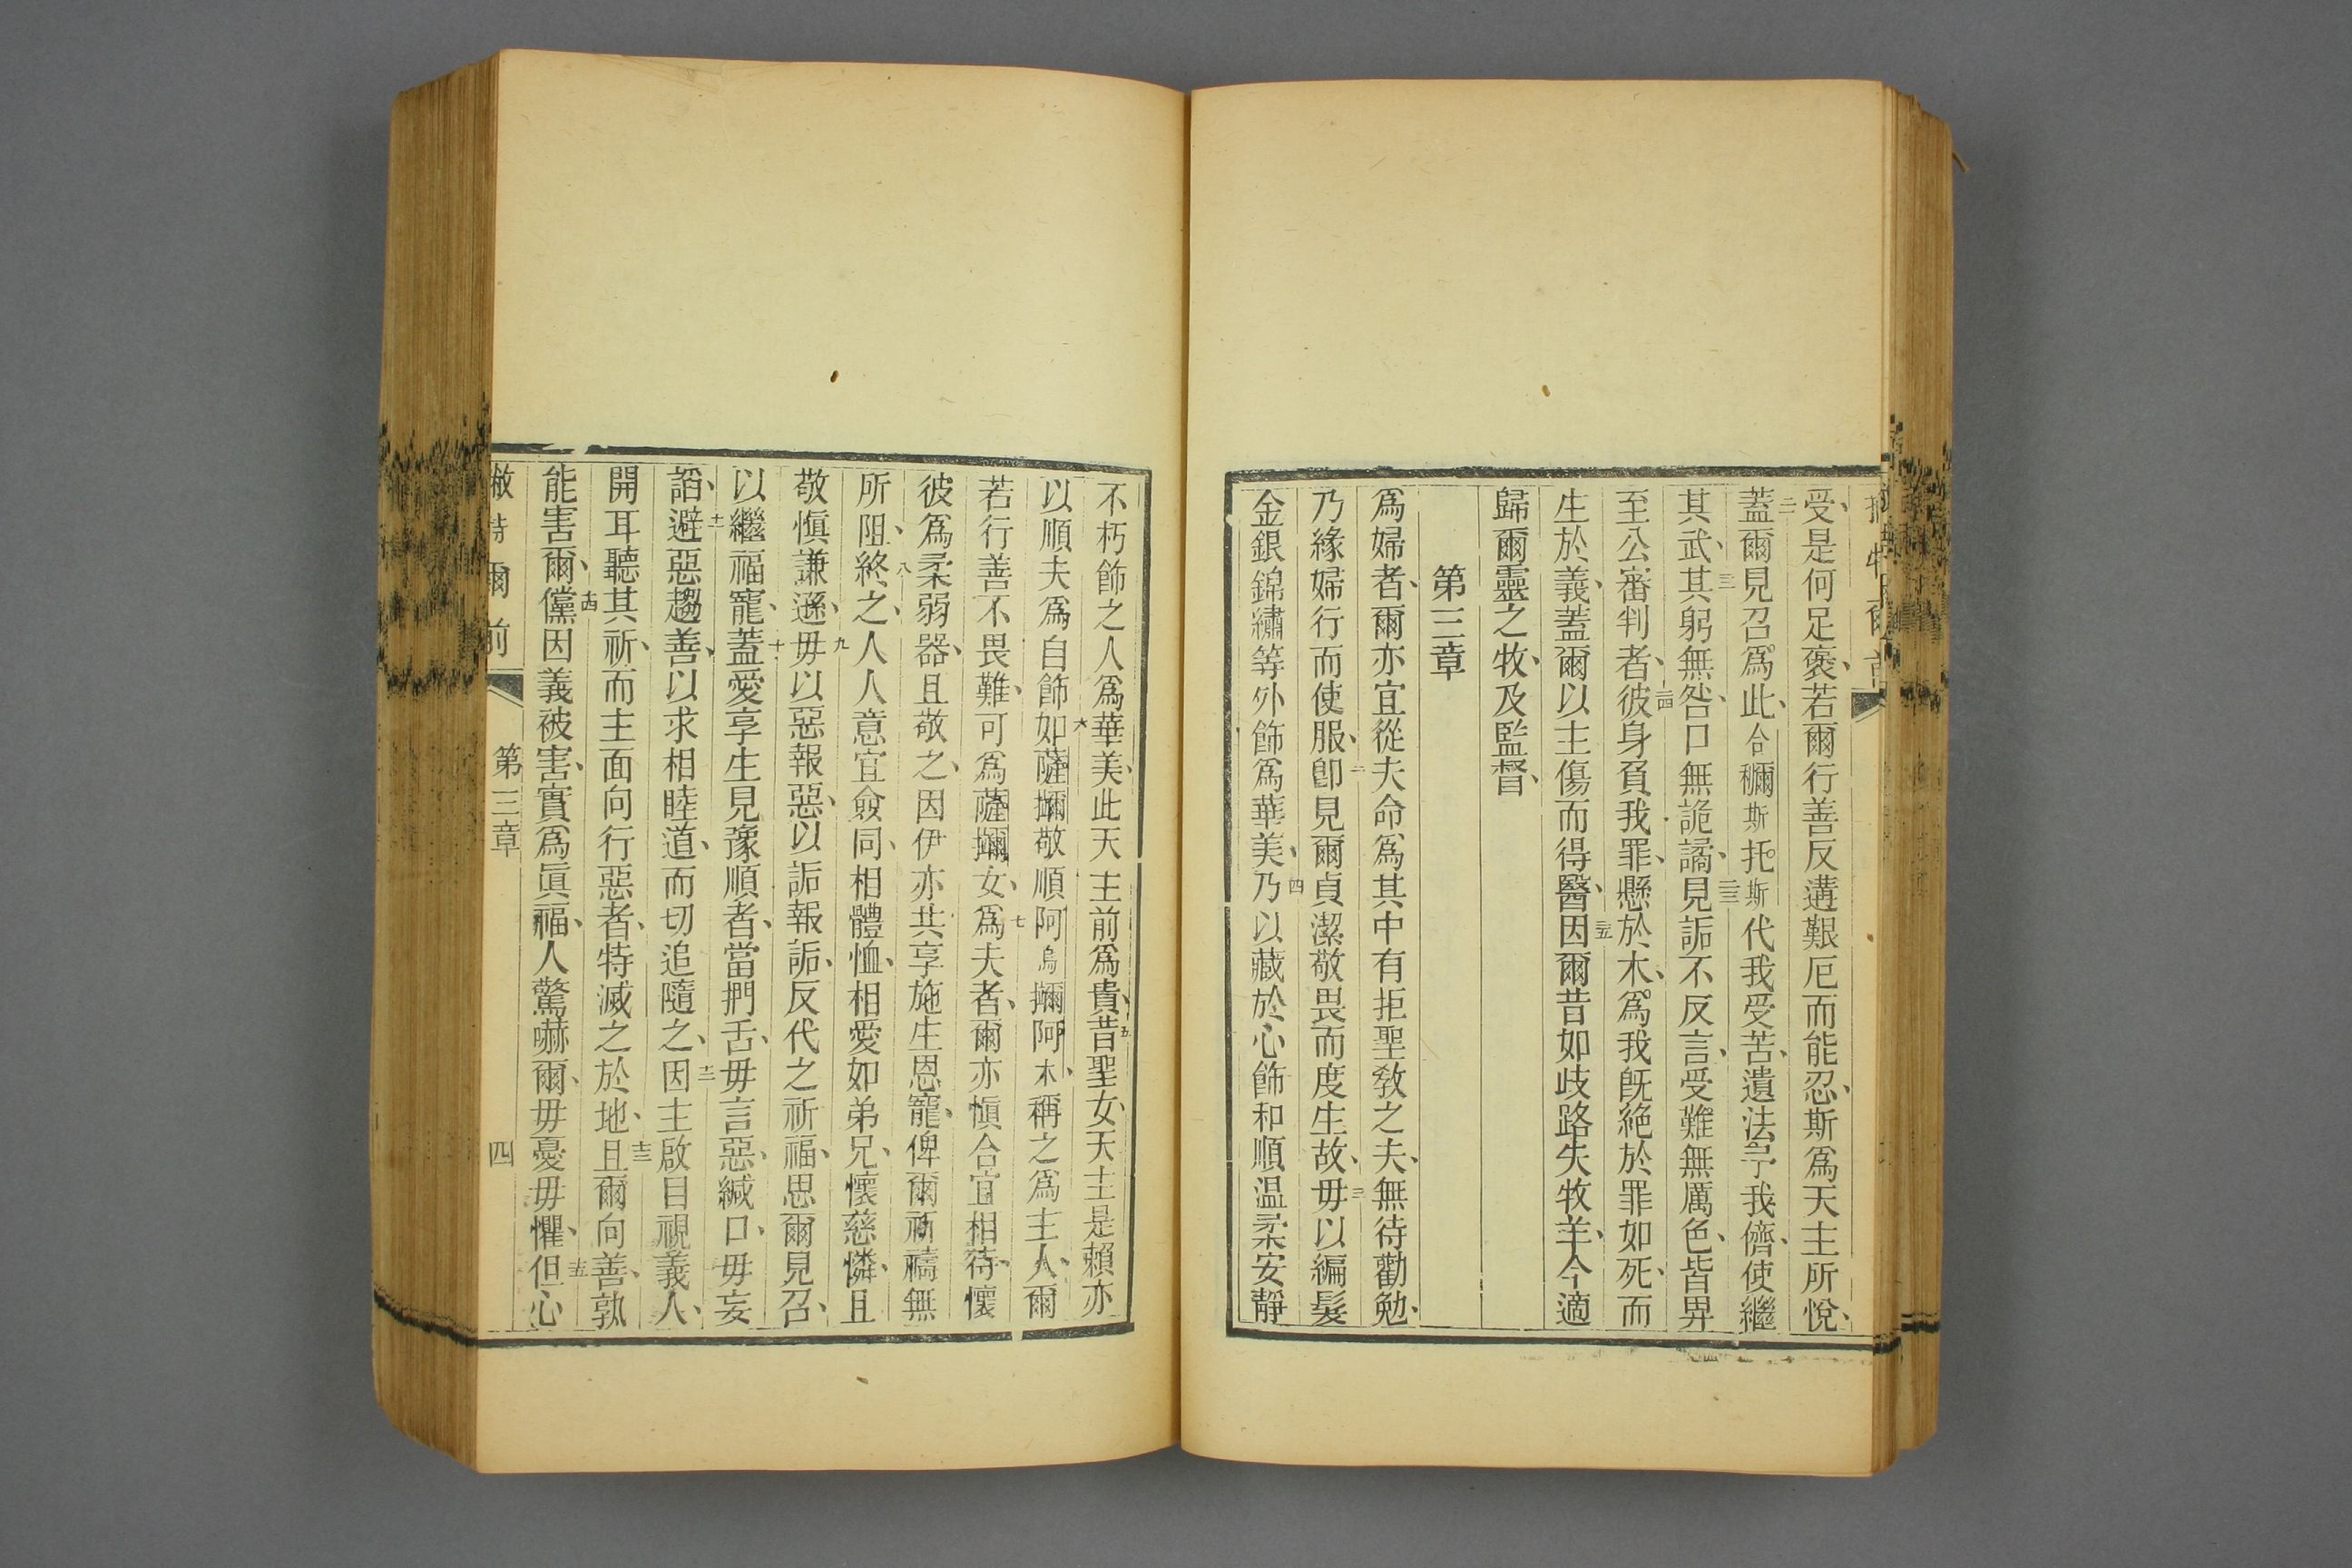 受、是何足褒、若爾行善反遘艱厄而能忍、斯爲天主所悅、
蓋爾見召爲此、合穪斯托斯代我受苦、遺法予我儕、使繼
其武、其躬無咎、口無詭譎、見詬不反言、受難無厲色、皆畀
至公審判者、彼身負我罪、懸於木、爲我旣絕於罪如死、而
生於義、蓋爾以主傷而得醫、因爾昔如歧路失牧羊、今適
歸爾靈之牧、及監督、
第三章
爲婦者、爾亦宜從夫命爲其中有拒聖敎之夫、無待勸勉、
乃緣婦行而使服、卽見爾貞潔敬畏而度生故、毋以編髮
金銀錦繡等外飾爲華美、乃以藏於心飾和順温柔安靜
不朽飾之人爲華美、此天主前爲貴、昔聖女、天主是賴亦
以順夫爲自飾如薩攡敬順阿烏攡阿木、稱之爲主人、爾
若行善不畏難、可爲薩攡女、爲夫者、爾亦愼合宜相待、懷
彼爲柔弱器、且敬之、因伊亦共享施生恩寵、俾爾祈禱無
所阻、終之、人人意宜僉同、相體恤、相愛如弟兄、懷慈憐、且
敬愼謙遜、毋以惡報惡、以詬報詬、反代之祈福、思爾見召、
以繼福寵、蓋愛享生見豫順者、當捫舌、毋言惡、緘口、毋妄
謟、避惡趨善、以求相睦道、而切追隨之、因主啟目視義人、
開耳聽其祈、而主面向行惡者、特滅之於地、且爾向善、孰
能害爾、儻因義被害、實爲眞福、人驚嚇爾、毋憂毋懼、但心
第三章
四